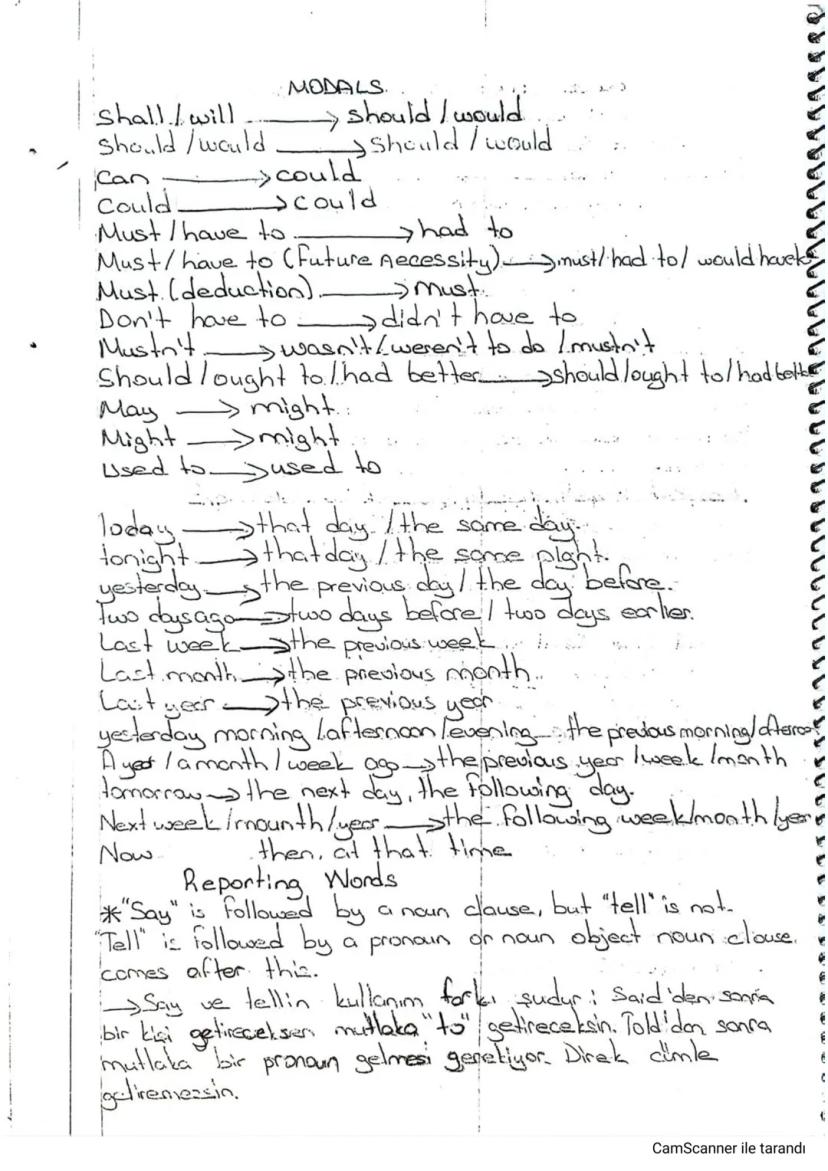 MODALS
Shall / will → should / would
Should / would → should / would
Can → could
Could → could
Must / have to → had to
Must / have to (future necessity) → must / had to / would have to
Must (deduction) → must
Don't have to → didn't have to
Mustn't → wasn't / weren't to do / mustn't
Should / ought to / had better → should / ought to / had better
May → might
Might → might
Used to → used to
Today → that day / the same day.
tonight → that day / the same night.
yesterday → the previous day / the day before.
two days ago → two days before / two days earlier.
Last week → the previous week
Last month → the previous month
Last year → the previous year
yesterday morning / afternoon / evening the previous morning /
A year / a month / week ago → the previous year / week / month
tomorrow → the next day, the following day.
Next week / mounth / year → the following week / month / year
Now then, at that time
Reporting Words
* "Say" is followed by a noun clause, but "tell" is not.
"Tell" is followed by a pronoun or noun object noun clouse.
comes after this.
→ Say ve tellin kullanım farkı şudur: Said'den sonra
bir kişi getireceksen mutlaka "to" getireceksin. Told'dan sonra
mutlaka bir pronoun gelmesi gerekiyor. Direk cümle
getiremezsin.
CamScanner ile tarandı